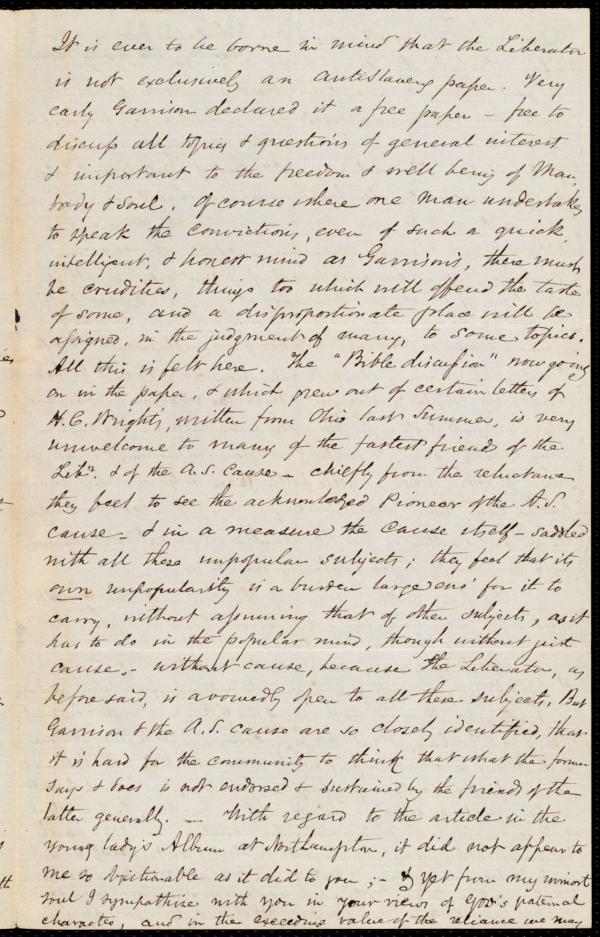 It is ever to be borne in mind that the Liberator
is not exclusively an antislavery paper. Very
early Garrison declared it a free paper - free to
discuss all topics & questions of general interest
& important to the freedom & well being of Man,
body & soul. Of course where one man undertakes
to speak the convictions, even of such a quick,
intelligent, & honest mind as Garrison's, there must
be crudities, things too which will offend the taste
of some, and a disproportionate place will be
assigned, in the judgment of many, to some topics.
All this is felt here. The "Bible discussion" now going
on in the paper, & which grew out of certain letters of
H.C. Wright's, written from Ohio last Summer, is very
unwelcome to many of the fastest friends of the
Libr. & of the A.S. Cause - chiefly from the reluctance
they feel to see the acknowledged Pioneer of the A.S.
cause - & in a measure the cause itself - saddled
with all these unpopular subjects; they feel that its
own unpopularity is a burden large eno' for it to
carry, without assuming that of other subjects, as it
has to do in the popular mind, though without just
cause. - without cause, because the Liberator, as
before said, is avowedly open to all these subjects. But
Garrison & the A.S. cause are so closely identified, that
it is hard for the community to think that what the former
says & does is not endorsed & sustained by the friends of the
latter generally. - With regard to the article in the
young lady's Album at Northampton, it did not appear to
me so objectionable as it did to you; - & yet from my inmost
soul I sympathise with you in your views of God's paternal
character, and in the exceeding value of the reliance we may